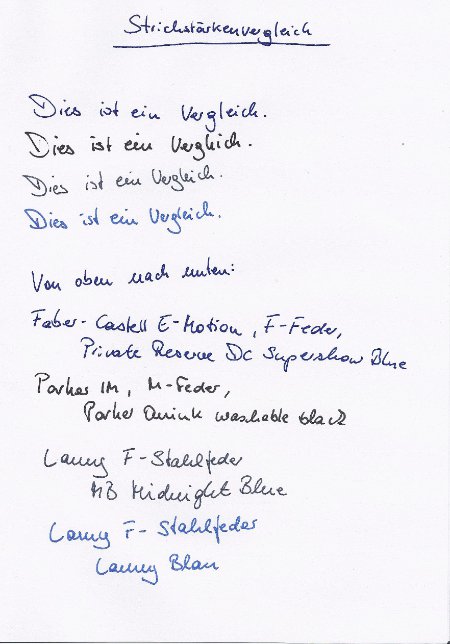 Strichstärkenvergleich
Dies ist ein Vergleich.
Dies ist ein Vergleich.
Dies ist ein Vergleich.
Dies ist ein Vergleich.
Von oben nach unten:
Faber-Castell E-Motion, F-Feder,
Private Reserve DC Supershow Blue
Parker IM, M-Feder,
Parker Quink washable black
Lamy F-Stahlfeder
MB Midnight Blue
Lamy F-Stahlfeder
Lamy Blau